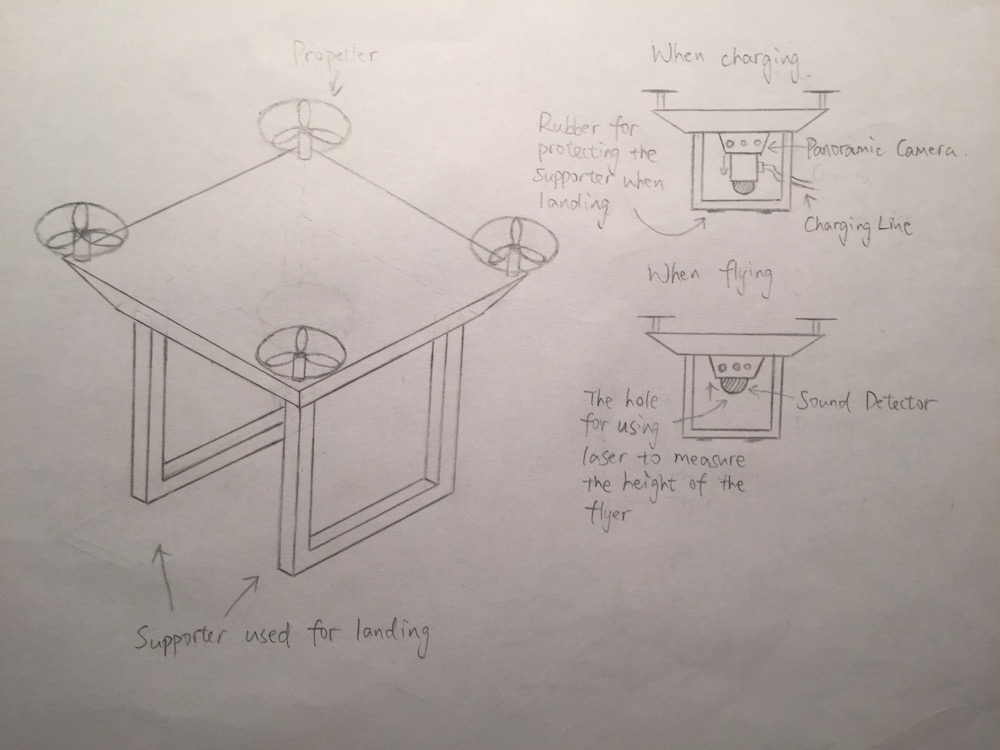 Propeller
When charging.
Rubber for
protecting the
supporter when
landing
Panoramic Camera.
Charging Line
When flying
The hole
for using
laser to measure
the height of the
flyer
Sound Detector
Supporter used for landing